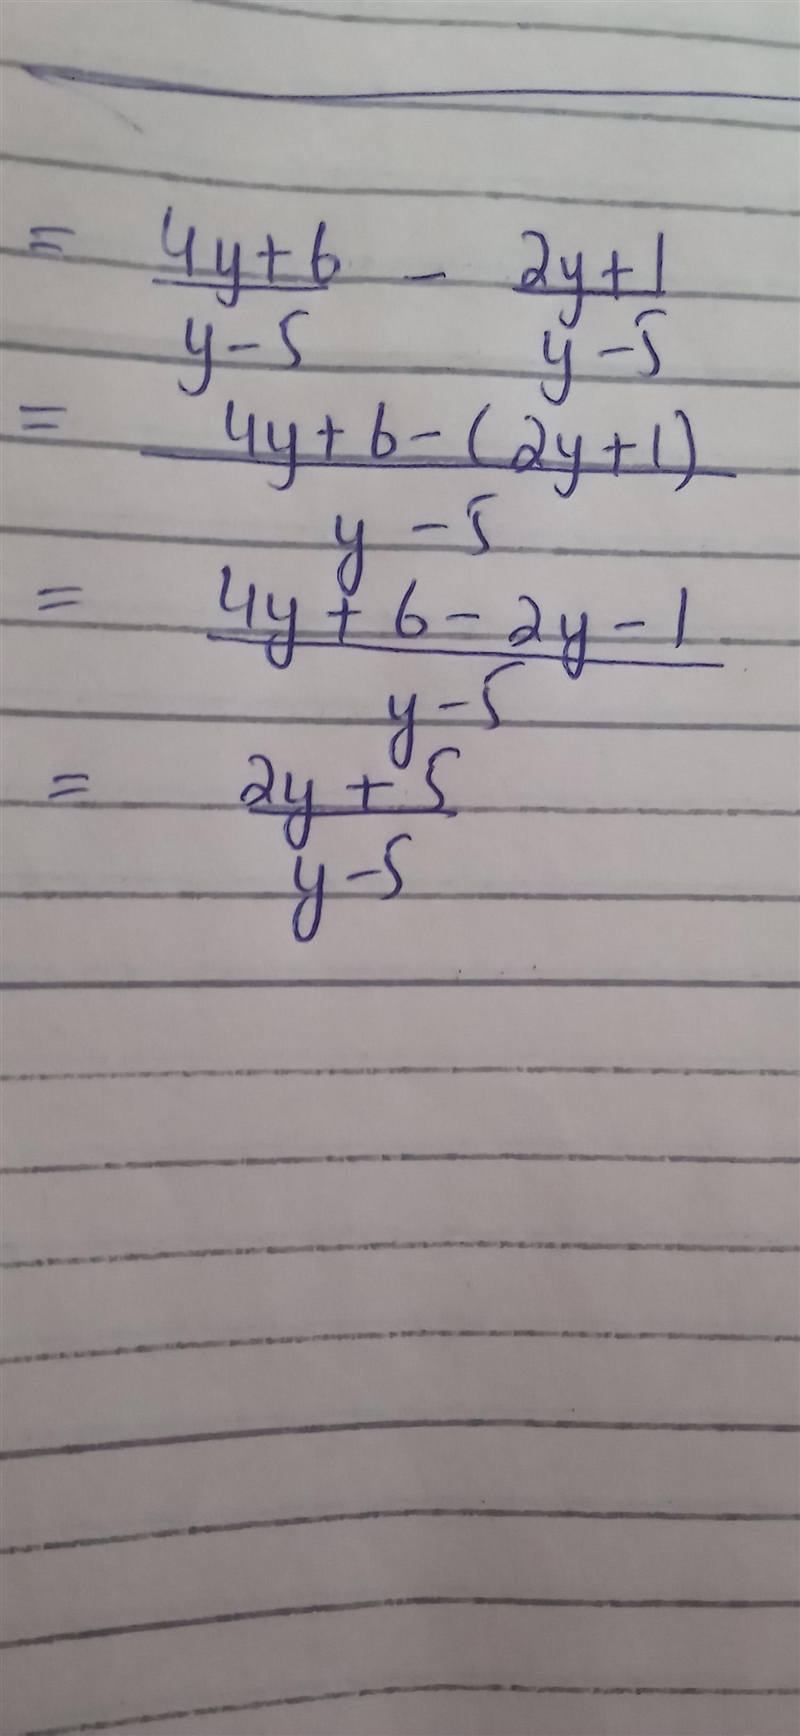 = 4y+6 - 2y+1
y-5 y-5
= 4y+6-(2y+1)
y-5
= 4y+6-2y-1
y-5
= 2y+5
y-5